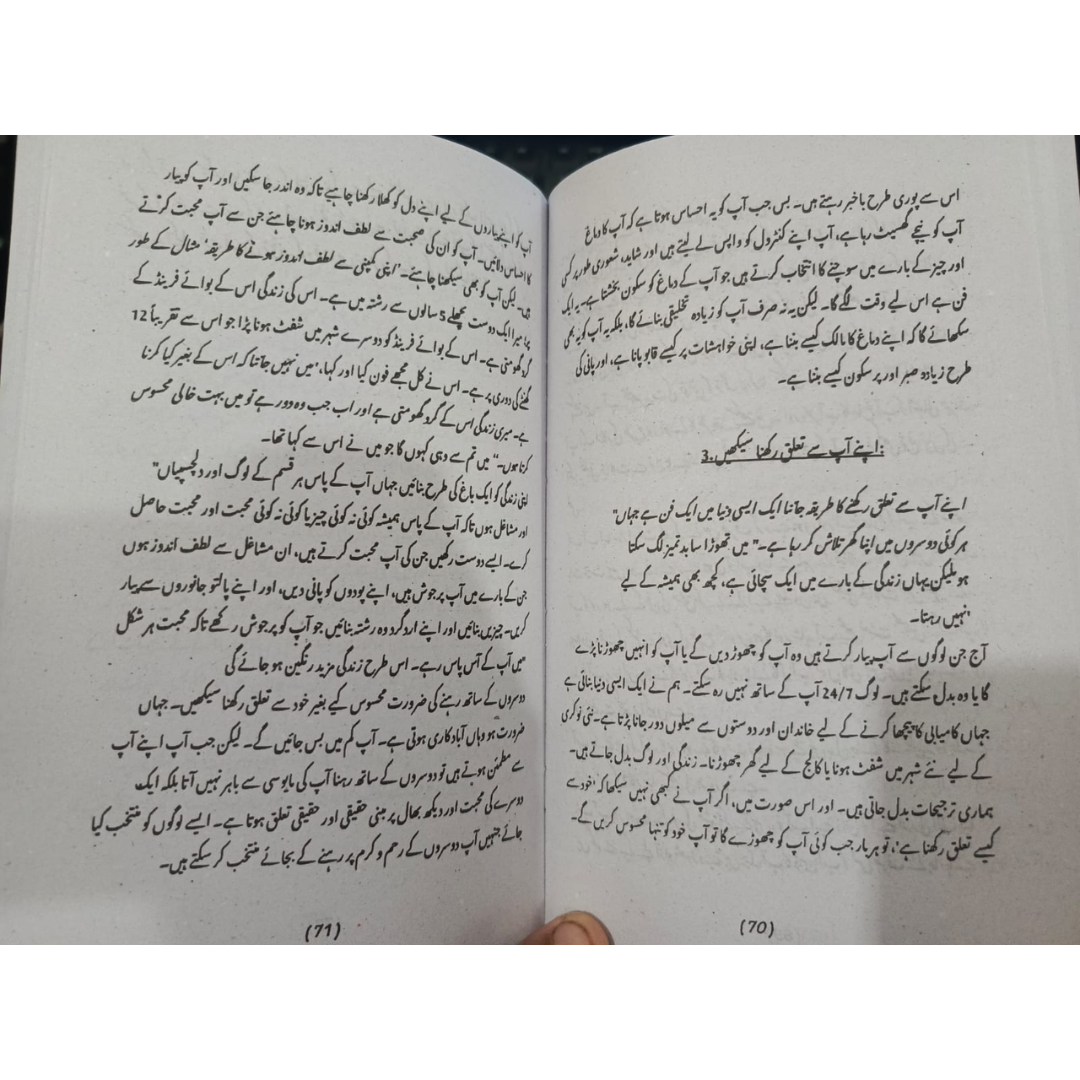 اس سے پوری طرح باخبر رہتے ہیں۔ بس جب آپ کو یہ احساس ہوتا ہے کہ آپ کا دماغ
آپ کو نیچے گھسیٹ رہا ہے، آپ اپنے کنٹرول کو واپس لے لیتے ہیں اور شاید، شعوری طور پر کسی
اور چیز کے بارے میں سوچنے کا انتخاب کرتے ہیں جو آپ کے دماغ کو سکون بخشتا ہے۔ یہ ایک
فن ہے اس لیے وقت لگے گا۔ لیکن یہ نہ صرف آپ کو زیادہ تخلیقی بنائے گا، بلکہ یہ آپ کو یہ بھی
سکھائے گا کہ اپنے دماغ کا مالک کیسے بننا ہے، اپنی خواہشات پر کیسے قابو پانا ہے، اور پانی کی
طرح زیادہ صبر اور پر سکون کیسے بننا ہے۔
3.اپنے آپ سے تعلق رکھنا سیکھیں:
اپنے آپ سے تعلق رکھنے کا طریقہ جاننا ایک ایسی دنیا میں ایک فن ہے جہاں"
ہر کوئی دوسروں میں اپنا گھر تلاش کر رہا ہے۔" میں تھوڑا سا بد تمیز لگ سکتا
ہو لیکن یہاں زندگی کے بارے میں ایک سچائی ہے، کچھ بھی ہمیشہ کے لیے
نہیں رہتا۔'
آج جن لوگوں سے آپ پیار کرتے ہیں وہ آپ کو چھوڑ دیں گے یا آپ کو انہیں چھوڑنا پڑے
گا یا وہ بدل سکتے ہیں۔ لوگ 24/7 آپ کے ساتھ نہیں رہ سکتے۔ ہم نے ایک ایسی دنیا بنائی ہے
جہاں کامیابی کا پیچھا کرنے کے لیے خاندان اور دوستوں سے میلوں دور جانا پڑتا ہے۔ نئی نوکری
کے لیے نئے شہر میں شفٹ ہونا یا کالج کے لیے گھر چھوڑنا۔ زندگی اور لوگ بدل جاتے ہیں۔
ہماری ترجیحات بدل جاتی ہیں۔ اور اس صورت میں، اگر آپ نے کبھی نہیں سیکھا کہ 'خود سے
کیسے تعلق رکھنا ہے'، تو ہر بار جب کوئی آپ کو چھوڑے گا تو آپ خود کو تنہا محسوس کریں گے۔
(70)
آپ کو اپنے پیاروں کے لیے اپنے دل کو کھلا رکھنا چاہیے تاکہ وہ اندر جا سکیں اور آپ کو پیار
کا احساس دلائیں۔ آپ کو ان کی صحبت سے لطف اندوز ہونا چاہئے جن سے آپ محبت کرتے
ہیں۔ لیکن آپ کو بھی سیکھنا چاہئے۔ 'اپنی کمپنی سے لطف اندوز ہونے کا طریقہ' مثال کے طور
پر، میرا ایک دوست پچھلے 5 سالوں سے رشتہ میں ہے۔ اس کی زندگی اس کے بوائے فرینڈ کے
گرد گھومتی ہے۔ اس کے بوائے فرینڈ کو دوسرے شہر میں شفٹ ہونا پڑا جو اس سے تقریباً 12
گھنٹے کی دوری پر ہے۔ اس نے کل مجھے فون کیا اور کہا، "میں نہیں جانتا کہ اس کے بغیر کیا کرنا
ہے۔ میری زندگی اس کے گرد گھومتی ہے اور اب جب وہ دور ہے تو میں بہت خالی محسوس
کرتا ہوں۔" میں تم سے وہی کہوں گا جو میں نے اس سے کہا تھا۔
اپنی زندگی کو ایک باغ کی طرح بنائیں جہاں آپ کے پاس ہر قسم کے لوگ اور دلچسپیاں"
اور مشاغل ہوں تاکہ آپ کے پاس ہمیشہ کوئی نہ کوئی چیز یا کوئی نہ کوئی محبت اور محبت حاصل
کرے۔ ایسے دوست رکھیں جن کی آپ محبت کرتے ہیں، ان مشاغل سے لطف اندوز ہوں
جن کے بارے میں آپ پرجوش ہیں، اپنے پودوں کو پانی دیں، اور اپنے پالتو جانوروں سے پیار
کریں۔ چیزیں بنائیں اور اپنے ارد گرد وہ رشتہ بنائیں جو آپ کو پرجوش رکھے تاکہ محبت ہر شکل
میں آپ کے آس پاس رہے۔ اس طرح زندگی مزید رنگین ہو جائے گی"
دوسروں کے ساتھ رہنے کی ضرورت محسوس کیے بغیر خود سے تعلق رکھنا سیکھیں۔ جہاں
ضرورت ہو وہاں آباد کاری ہوتی ہے۔ آپ کم میں بس جائیں گے۔ لیکن جب آپ اپنے آپ
سے مطمئن ہوتے ہیں تو دوسروں کے ساتھ رہنا آپ کی مایوسی سے باہر نہیں آتا بلکہ ایک
دوسرے کی محبت اور دیکھ بھال پر مبنی حقیقی اور حقیقی تعلق ہوتا ہے۔ ایسے لوگوں کو منتخب کیا
جائے جنہیں آپ دوسروں کے رحم و کرم پر رہنے کے بجائے منتخب کر سکتے ہیں۔
(71)